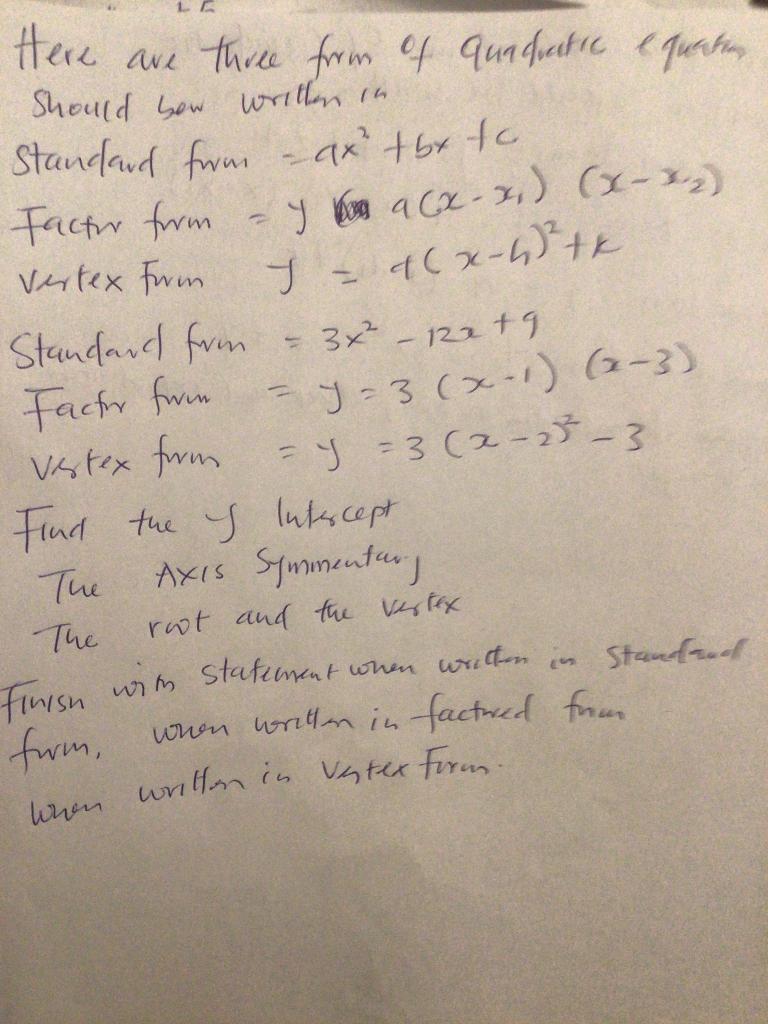 Here are three form of quadratic equation
should bew written in
Standard form = ax² + bx + c
Factor form = y a(x - x₁) (x - x₂)
Vertex Form y = a(x - h)² + k
Standard form = 3x² - 12x + 9
Factor form = y = 3 (x - 1) (x - 3)
Vertex form = y = 3 (x - 2)² - 3
Find the y Intercept
The Axis Symmentary
The root and the vertex
Finish with statement when written in Standard
form, when written in factored from
when written in Vertex Form.